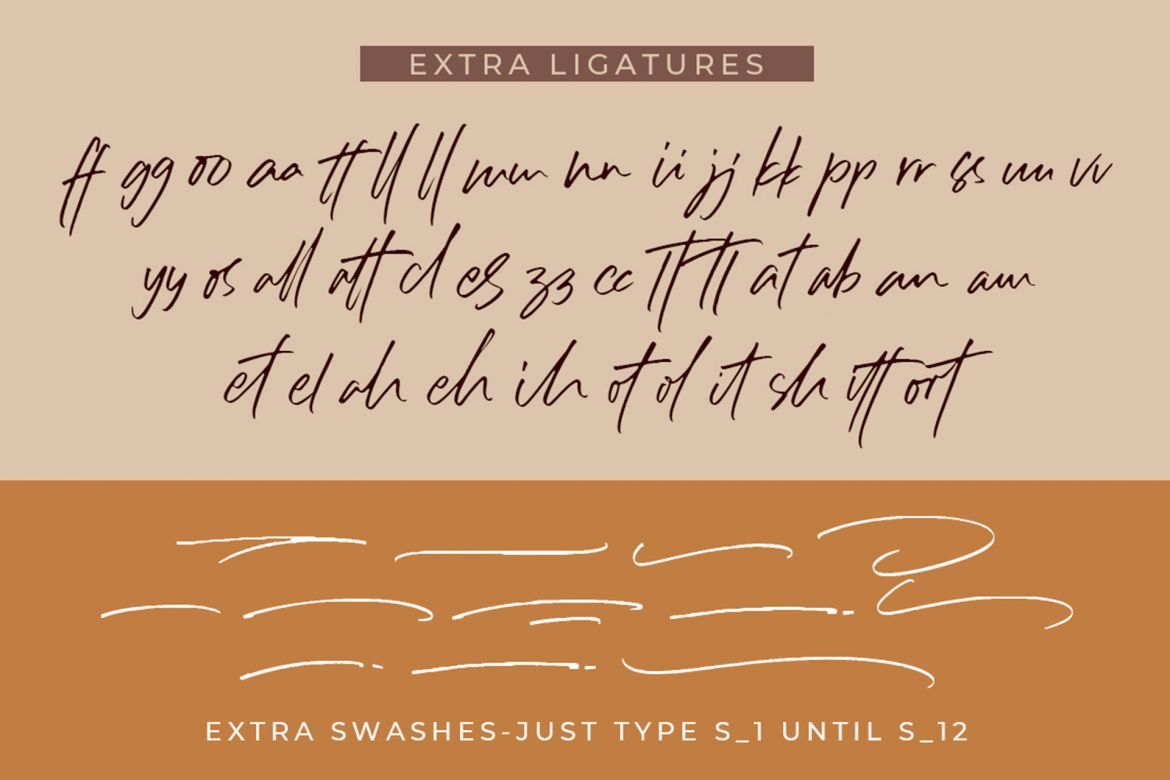 EXTRA LIGATURES
ff gg oo aa tt ll ll mm nn ii jj kk pp rr ss uu vv
yy os all att cl es zz cc tt tt at ab an am
et el ah eh ih ot ol it sh itt ort
EXTRA SWASHES-JUST TYPE S_1 UNTIL S_12